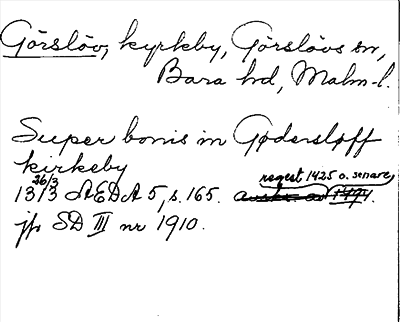 Görslöv, kyrkeby, Görslövs sn,
Bara hd, Malm-l.
Super bonis in Gødersløff
kirkeby
26/3 regest 1425 o. senare
13/3 ÆDA 5, s. 165. avskr. av 1494.
jfr SD III nr 1910.